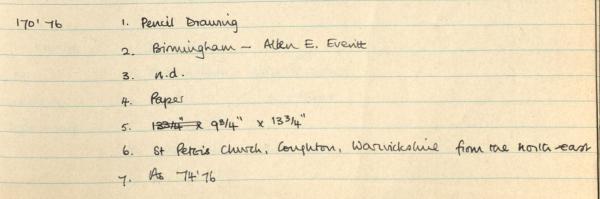 170'76 1. Pencil Drawing
2. Birmingham – Allen E. Everitt
3. n.d.
4. Paper
5. 13 3/4" x 9 3/4" x 13 3/4"
6. St Peter's Church, Coughton, Warwickshire from the north-east
7. As 74'76